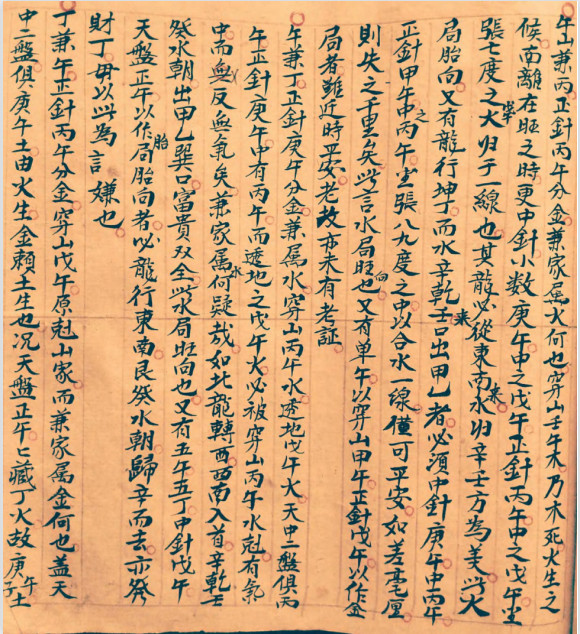 午山兼丙正針丙午分金兼家属火何也穿山壬午木乃木死火生之
候南離在旺之時更中針小数庚午中之戊午正針丙午中之戊午坐
張宿七度之火归于一線也其龍必從東南来水归辛壬方為美此火
局胎向又有龍行坤丁而水来辛乾壬口出甲乙者必須中針庚午中丙午
正針甲午中之丙午坐張八九度之中以合水一線僅可平安如差毫厘
則失之千里矣此言水局旺向也又有单午以穿山甲午正針戊午以作金
局者雖近時平安老故亦未有老証
午兼丁正針庚午分金兼属水穿山丙午水透地戊午火天中二盤俱丙
午正針庚午中有丙午而透地之戊午火必被穿山丙午水尅有氣
中而無反無气矣兼家属水何疑哉如此龍轉酉西南入首辛乾壬
癸水朝出甲乙巽口富貴双全此水局旺向也又有五午五丁中針戊午
天盤正午以作胎局胎向者必龍行東南艮癸水朝歸辛而去亦發
財丁毋以此為言嫌也
丁兼午正針丙午分金穿山戊午原尅山家而兼家属金何也盖天
中二盤俱庚午土由火生金頼土生也况天盤正午匕藏丁火故庚午庚子土